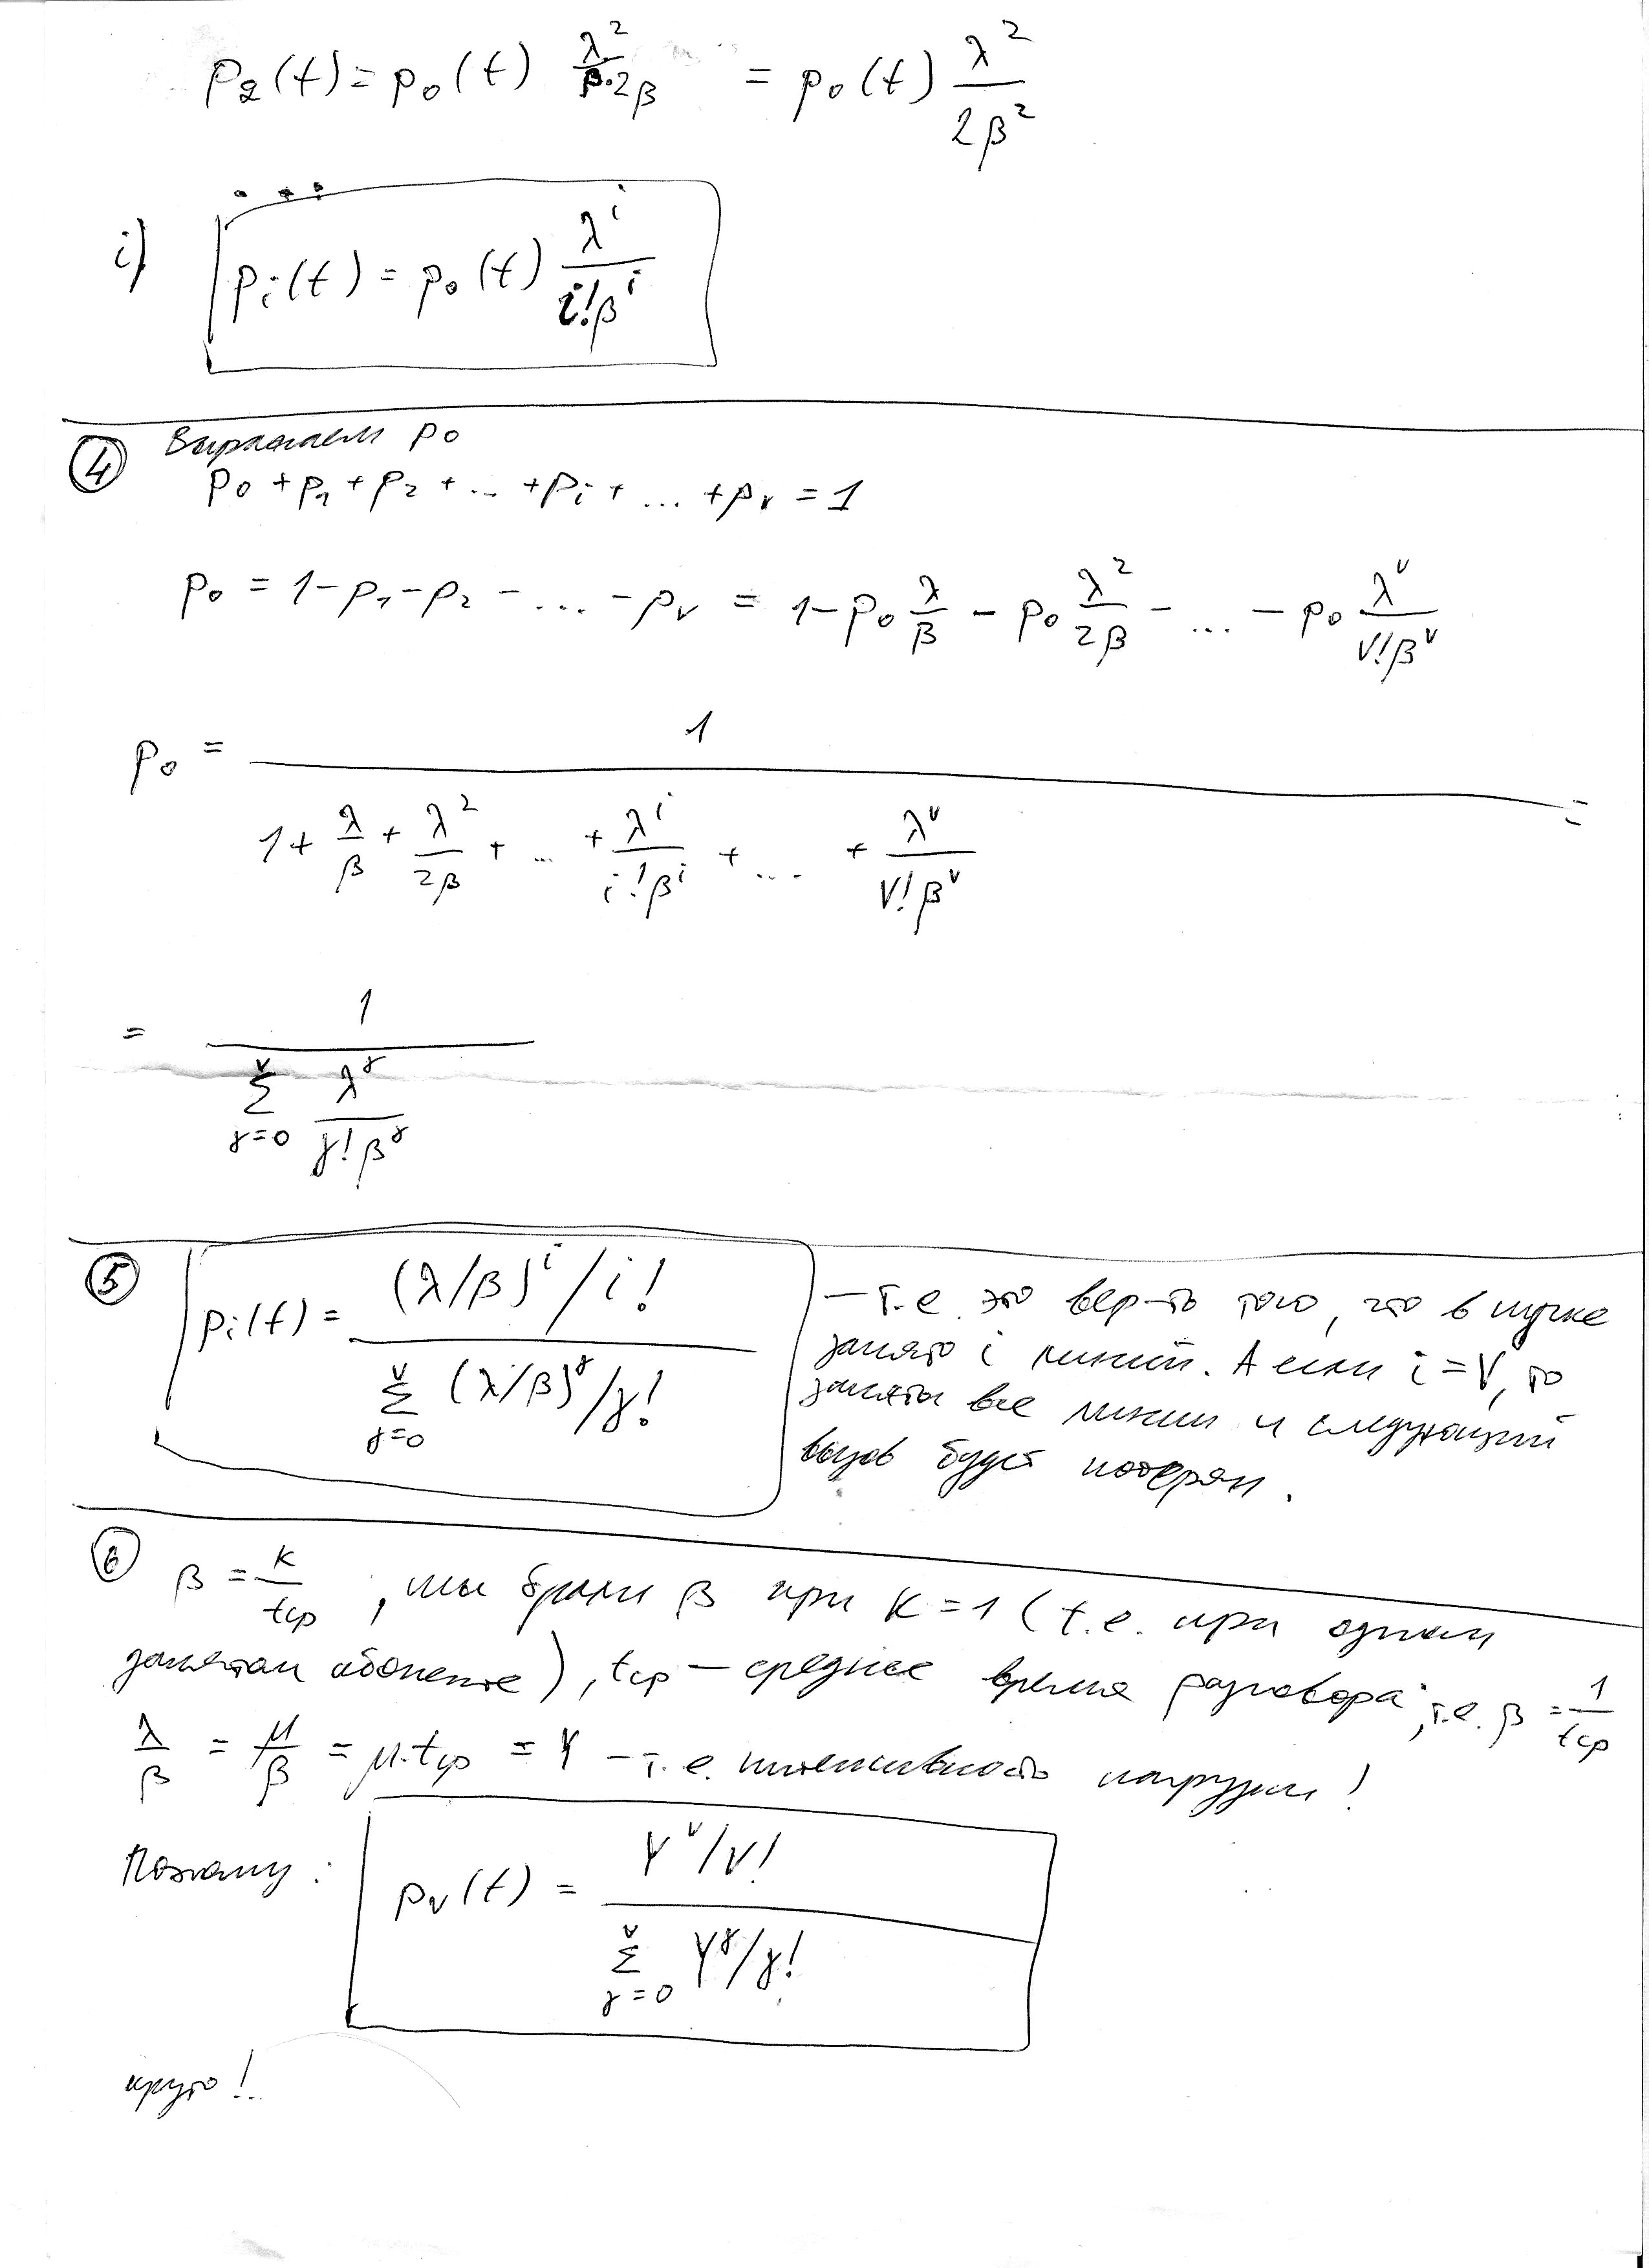 p₂(t) = p₀(t) λ²/(β·2β) = p₀(t) λ²/(2β²)
...
i) pᵢ(t) = p₀(t) λⁱ/(i!βⁱ)
④ Выражаем p₀
p₀ + p₁ + p₂ + ... + pᵢ + ... + p_V = 1
p₀ = 1 - p₁ - p₂ - ... - p_V = 1 - p₀ λ/β - p₀ λ²/(2β) - ... - p₀ λ^V/(V!β^V)
p₀ = 1/(1 + λ/β + λ²/(2β) + ... + λⁱ/(i!βⁱ) + ... + λ^V/(V!β^V)) =
= 1/(Σ_{γ=0}^{V} λ^γ/(γ!β^γ))
⑤ pᵢ(t) = ((λ/β)ⁱ/i!)/(Σ_{γ=0}^{V} (λ/β)^γ/γ!)
— т.е. это вер-ть того, что в пучке
занято i линий. А если i = V, то
заняты все линии и следующий
вызов будет потерян.
⑥ β = K/tср, мы брали β при K = 1 (т.е. при одном
занятом абоненте), tср — среднее время разговора, т.е. β = 1/tср
λ/β = μ/β = μ·tср = Y — т.е. интенсивность нагрузки!
Поэтому: p_V(t) = (Y^V/V!)/(Σ_{γ=0}^{V} Y^γ/γ!)
круто!..